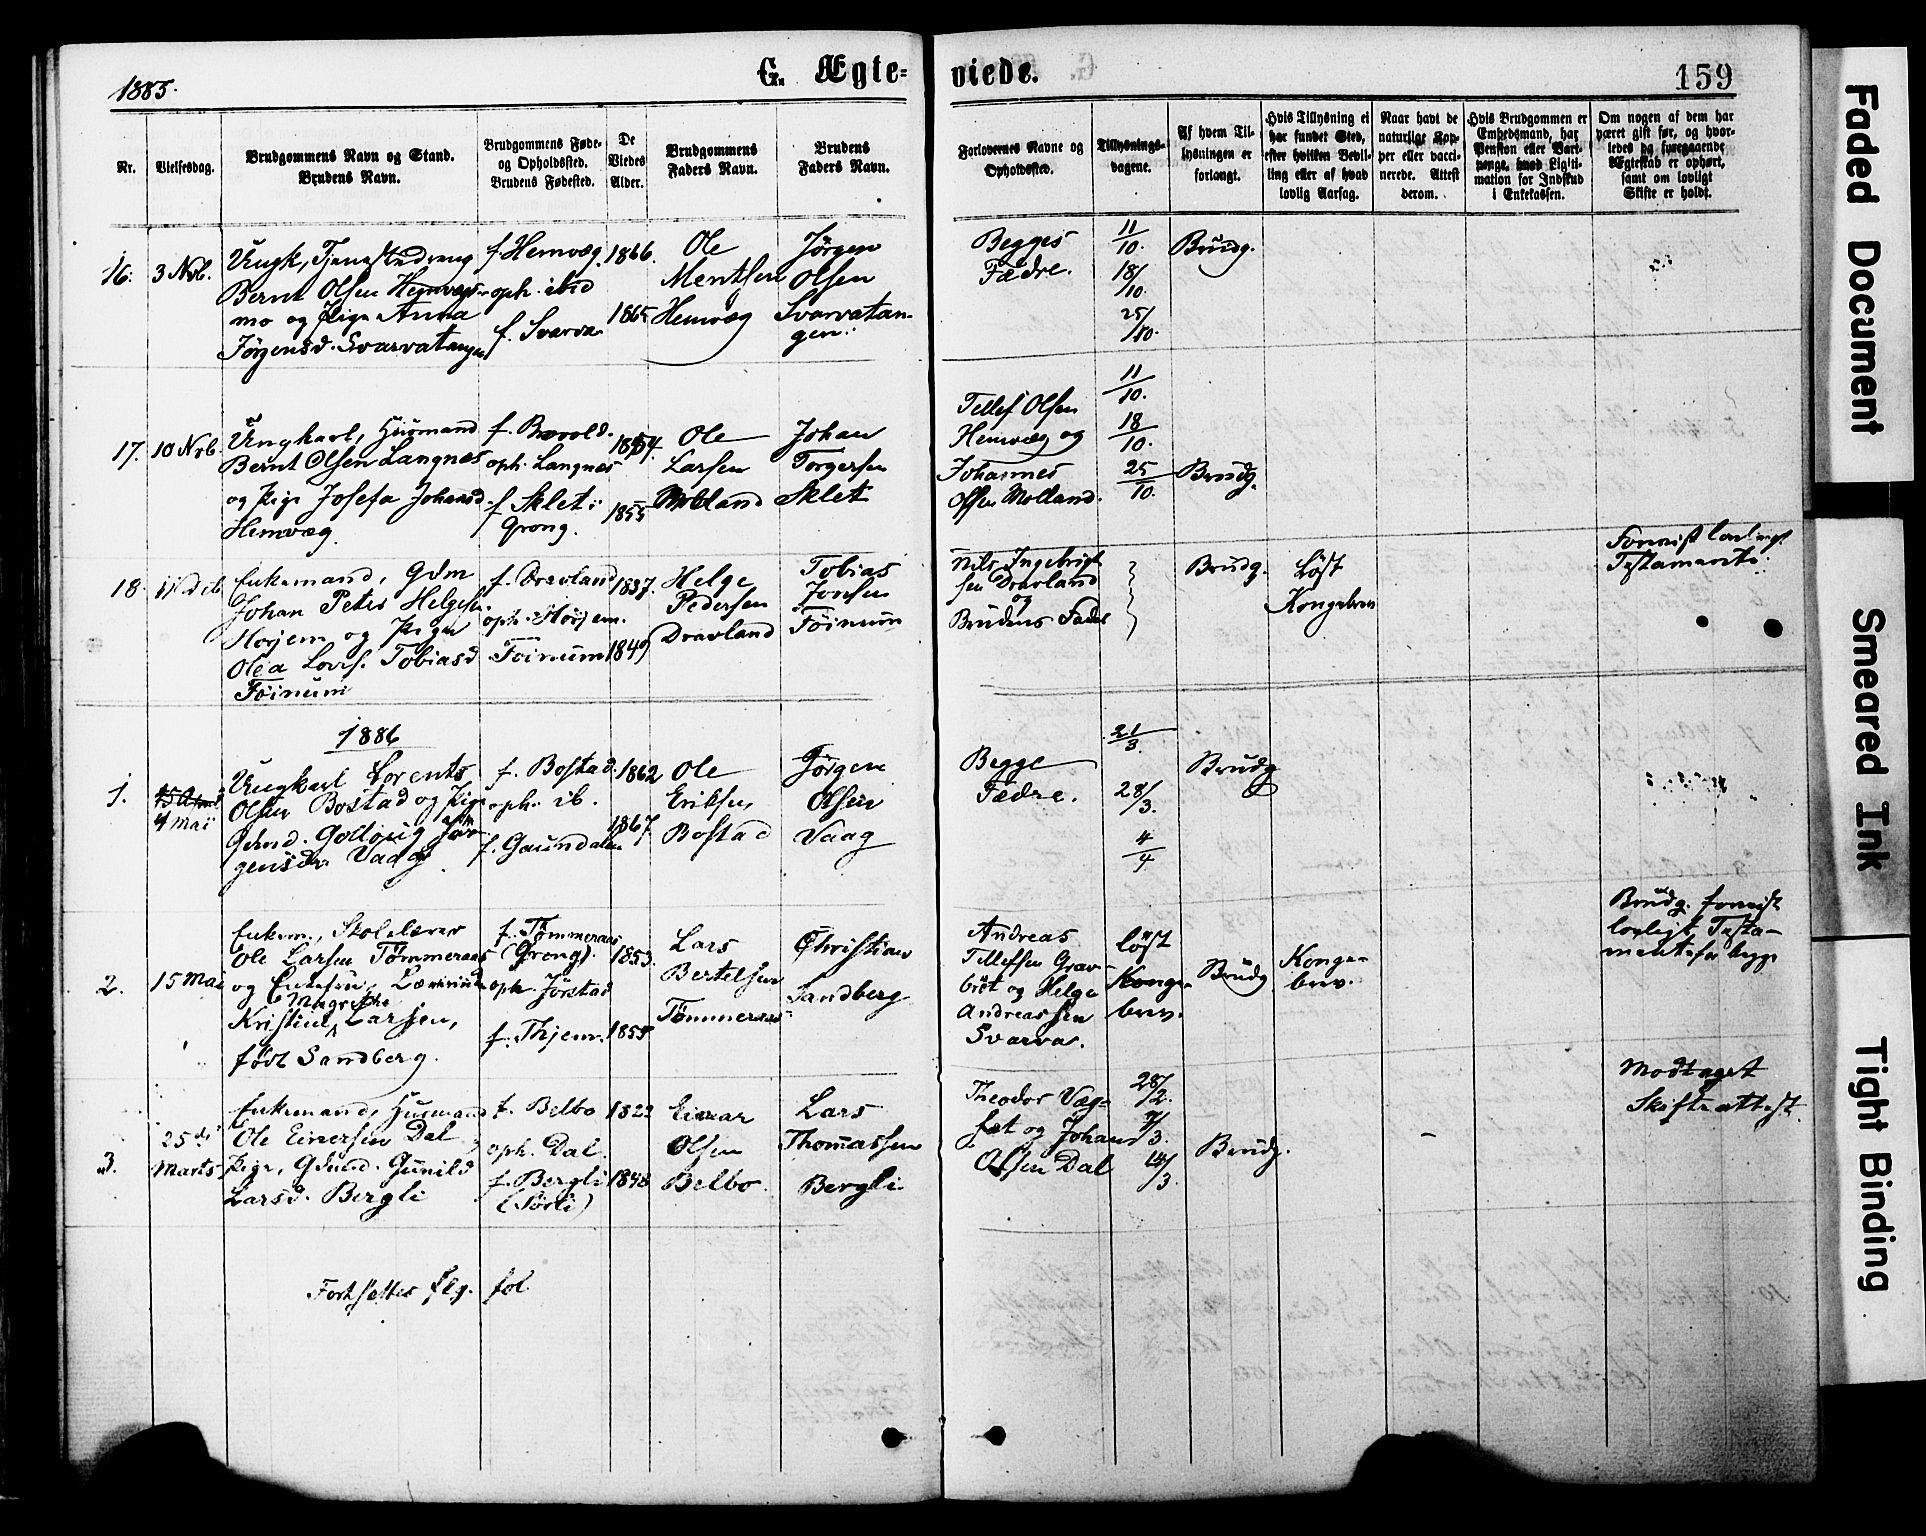 1885.
G. Ægte=
viede.
159
Nr.
Vielsesdag.
Brudgommens Navn og Stand.
Brudens Navn.
Brudgommens Føde-
og Opholdssted.
Brudens Fødested.
De
Viedes
Alder.
Brudgommens
Faders Navn.
Brudens
Faders Navn.
Forlovernes Navne og
Opholdssted.
Tillysnings-
dagene.
Af hvem Til-
lysningen er
forlangt.
Hvis Tillysning ei
har fundet Sted,
efter hvilken Bevil-
ling eller af hvad
lovlig Aarsag.
Naar havt de
naturlige Kop-
per eller vacci-
nerede. Attest
derom.
Hvis Brudgommen er
Embedsmand, har
Pension eller Vart-
penge, hvad Legiti-
mation for Indskud
i Enkekassen.
Om nogen af dem har
været gift før, og hvor-
ledes da foregaaende
Ægteskab er ophørt,
samt om lovligt
Skifte er holdt.
16.
3 Nvb.
Ungk, Tjenestedreng
Bernt Olsen Hemvegs-
mo og Pige Anna
Jørgensd. Svarvatangen
f. Hemvæg.
oph. ibid
f. Svarva
1866.
1865
Ole
Mentsen
Hemvæg
Jørgen
Olsen
Svarvatan-
gen.
Begges
Fædre.
11/10.
18/10.
25/10.
Brudg.
17.
10 Nvb.
Ungkarl, Husmand
Bernt Olsen Langnes
og Pige Josefa Johansd
Hemvæg.
f. Brvold.
oph. Langnes
f. Sklet i
Grong.
1854.
1855
Ole
Larsen
Molland
Johan
Torgersen
Sklet
Tellef Olsen
Hemvæg og
Johannes
Olsen Molland.
11/10.
18/10.
25/10.
Brudg.
18.
Enkemand, Gdm
Johan Peter Helgesen.
Horjem og Pige
Olea Lovis. Tobiasd
Føinum
f. Dravland
oph. Horjem.
Føinum
1837.
1849
Helge
Pedersen
Dravland
Tobias
Jonsen
Føinum
Nils Ingebrigt
sen Dravland
og
Brudens Fader
Brudg.
Løst
Kongebrev
Forevist lovligt
Testamente.
1886
1.
15 April
4 Mai
Ungkarl Lorents
Olsen Bostad og Pige
Gdmd. Golloug Jør-
gensdr Vaag.
f. Bostad.
oph. ib.
f. Gaundalen
1862
1867.
Ole
Eriksen
Bostad
Jørgen
Olsen
Vaag
Begge
Fædre.
21/3.
28/3.
4/4
Brudg
2.
15 Mai
Enkem., Skolelærer
Ole Larsen Tømmeraas
og Enkefru, Lærerinde
Magrethe
Kristine Larsen,
født Sandberg.
f. Tømmeraas
(Grong).
oph. Jørstad
f. Thjem.
1853.
1855
Lars
Bertelsen
Tømmeraas
Christian
Sandberg
Andreas
Tellefsen Grav-
brøt og Helge
Andreassen
Svarva.
løst
Konge-
brev.
Brudg
Konge-
brev.
Brudg. forevist
lovligt Testa-
mente for begge
3.
25de
Marts
Enkemand, Husmand
Ole Einersen Dal
Pige, Gdmd. Gunild
Larsd. Bergli
f. Belbo
oph. Dal.
f. Bergli
(Sørli)
1822
1848
Einar
Olsen
Belbo.
Lars
Thomassen
Bergli
Theodor Væg-
set og Johan
Olsen Dal
28/2.
7/3.
14/3.
Brudg.
Modtaget
Skifteattest.
Fortsættes flg. fol.
Faded Document
Smeared Ink
Tight Binding